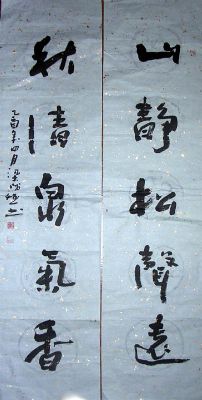 山靜松聲遠
秋清泉氣香
乙酉年四月